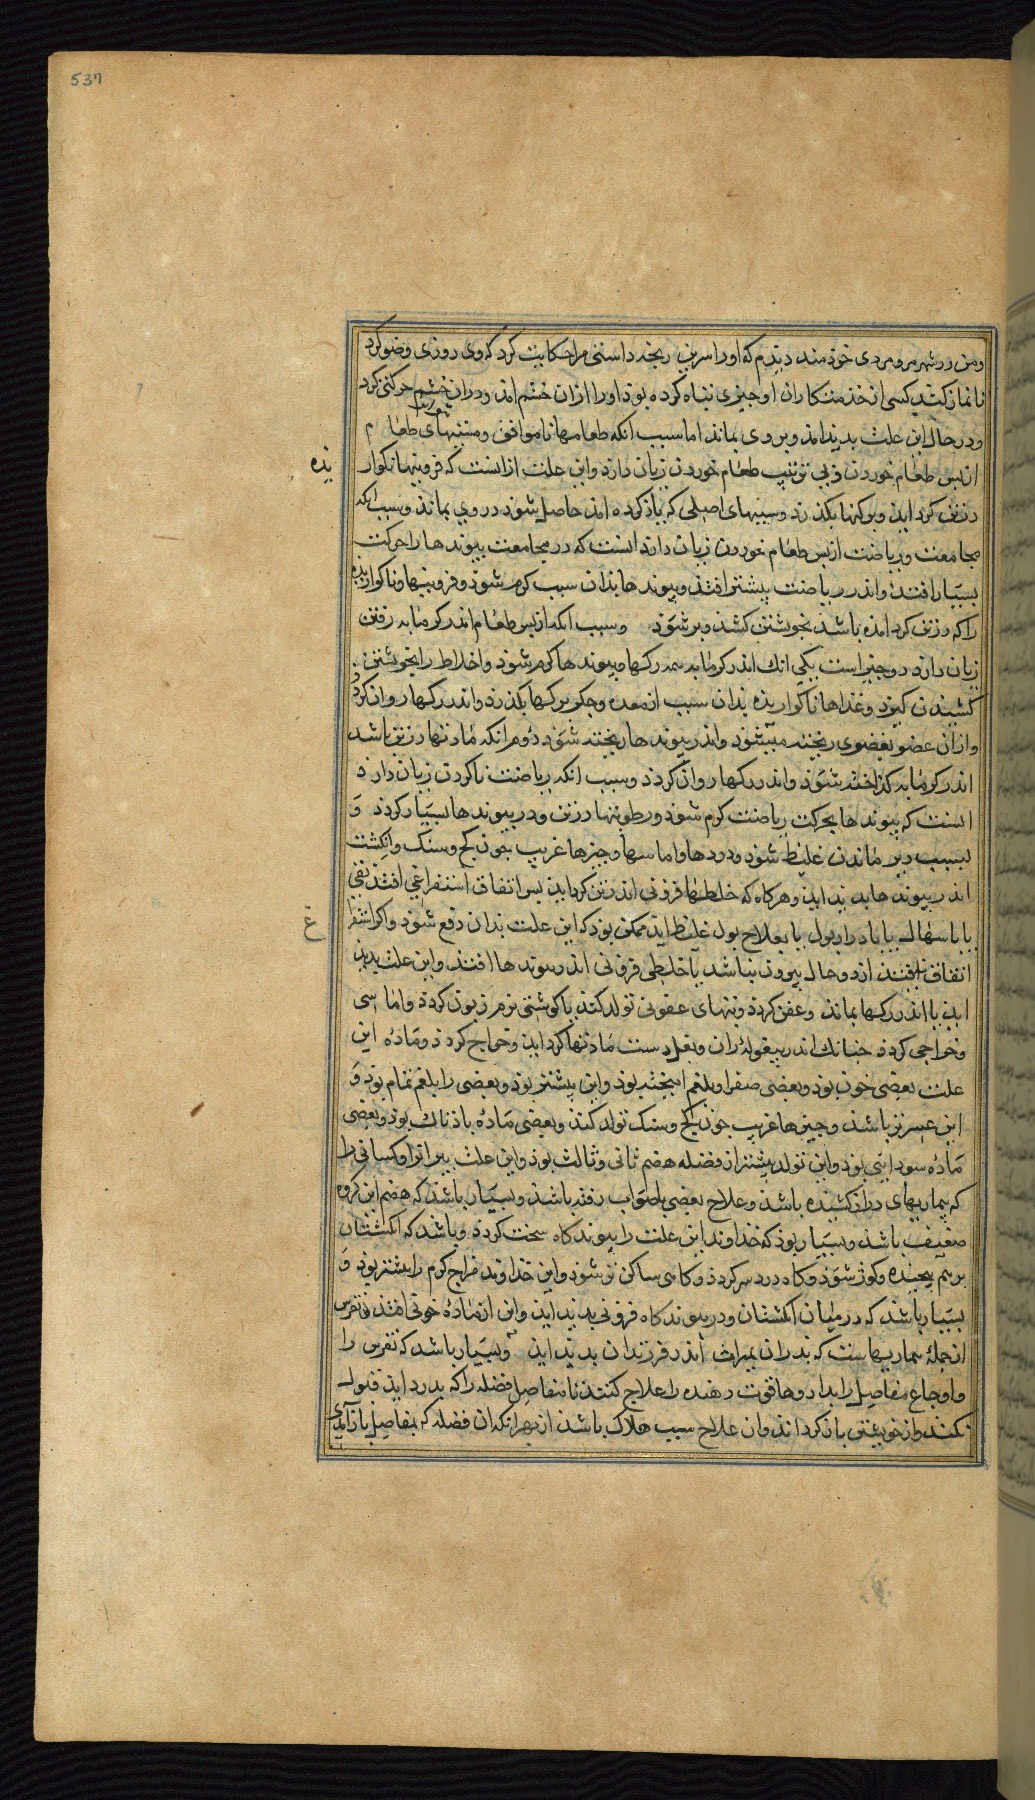 537
ومن در شهر مرو مردی خوذمند دیذم که اورا سرین ریخته داشتی مرا حکایت کرد که وی روزی وضو کرد
تا نماز کند کسی از خذمتکاران او چیزی تباه کرده بوذ اورا ازان خشم امذ ودران خشم حرکتی کرد
ودر حال این علت بدیذ امذ وبروی بماند اما سبب انکه طعامهاء ناموافق وشبیهای طعام
از پس طعام خوردن وبی ترتیب طعام خوردن زیان دارذ واین علت ازانست که فزونیها ناکوار
یذه
در تن کرد ایذ وبرکها بکذرذ وسببهای اصلی که یاذ کرده امذ حاصل شوذ دروی بماند وسبب انکه
مجامعت وریاضت از پس طعام خوردن زیان دارذ انست که در مجامعت پیوندها را حرکت
بسیار افتذ واندر ریاضت بیشتر افتذ وپیوندها بذان سبب کرم شوذ وفزونیها وناکواریذه
را که در تن کرد امذه باشذ بخویشتن کشذ وبر شوذ وسبب انکه از پس طعام اندر کرمابه رفتن
زیان دارذ دو چیز است یکی انک اندر کرمابه همه رکها وپیوندها کرم شوذ واخلاط را بخویشتن
کشیدن کیرذ وغذاها ناکواریذه بذان سبب از معده وجکر برکها بکذرذ واندر رکها روان کردد
وازان عضو بعضوی ریخته میشوذ واندر پیوندها ریخته شوذ دوم انکه مادتها در تن باشد
اندر کرمابه کذاخته شوذ واندر رکها روان کردذ وسبب انکه ریاضت ناکردن زیان دارذ
انست که پیوندها بحرکت ریاضت کرم شوذ ورطوبتها در تن ودر پیوندها بسیار کردذ و
بسبب دیر ماندن غلیظ شوذ ودردها واماسها وچیزها غریب چون کج وسنک وانکشت
اندر پیوندها بدیذ ایذ وهر کاه که خلطها فزونی اندر تن کرد ایذ پس اتفاق استفراغی افتذ بقی
یا باسهال یا بادرار بول یا بعلاج بول غلیظ ایذ ممکن بوذ که این علت بذان دفع شوذ واکر استفرا
غ
اتفاق نیفتذ از دو حال بیرون نباشد یا خلطی فزونی اندر پیوندها افتذ واین علت بدیذ
ایذ یا اندر رکها بماند وعفن کردذ وتبهای عفونی تولد کند یا کوشتی نرم زبون کردذ واماسی
وخراجی کردذ چنانک اندر بیغوله ران وبغل دست مادتها کرد ایذ وخراج کردذ وماده این
علت بعضی خون بوذ وبعضی صفرا وبلغم امیخته بوذ واین بیشتر بوذ وبعضی را بلغم تمام بوذ و
این عسرتر باشذ وچیزها غریب چون کج وسنک تولد کنذ وبعضی ماده باذناک بوذ وبعضی
ماده سودایی بوذ واین تولد بیشتر از فضله هضم ثانی وثالث بوذ واین علت پیران را وکسانی را
که بیماریهای دراز کشیده باشذ وعلاج بعضی بصواب رفته باشذ وبسیار باشذ که هضم این کروه
ضعیف باشذ وبسیار بوذ که خذاوند این علت را پیوندکاه سخت کردذ وباشذ که انکشتان
برهم پیچیذه وکوژ شوذ وکاه درد سر کردذ وکاهی ساکن تر شوذ واین خذاوند مزاج کرم را بیشتر بوذ و
بسیار باشذ که در میان انکشتان ودر پیوندکاه فزونی بدیذ ایذ واین از ماده خونی افتذ ونقرس
از جمله بیماریهاست که پذران بمیراث اندر فرزندان بدیذ ایذ وبسیار باشذ که نقرس را
واوجاع مفاصل را بداروها قوت دهنده را علاج کنند تا مفاصل فضله را که بدرد ایذ قبول
نکند واز خویشتن باز کرداند وان علاج سبب هلاک باشذ از بهر انکه ان فضله که بمفاصل باز آمدی